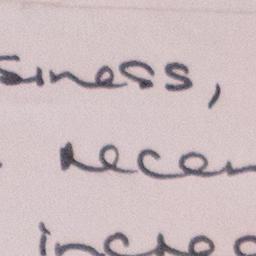 siness,
recen
increa